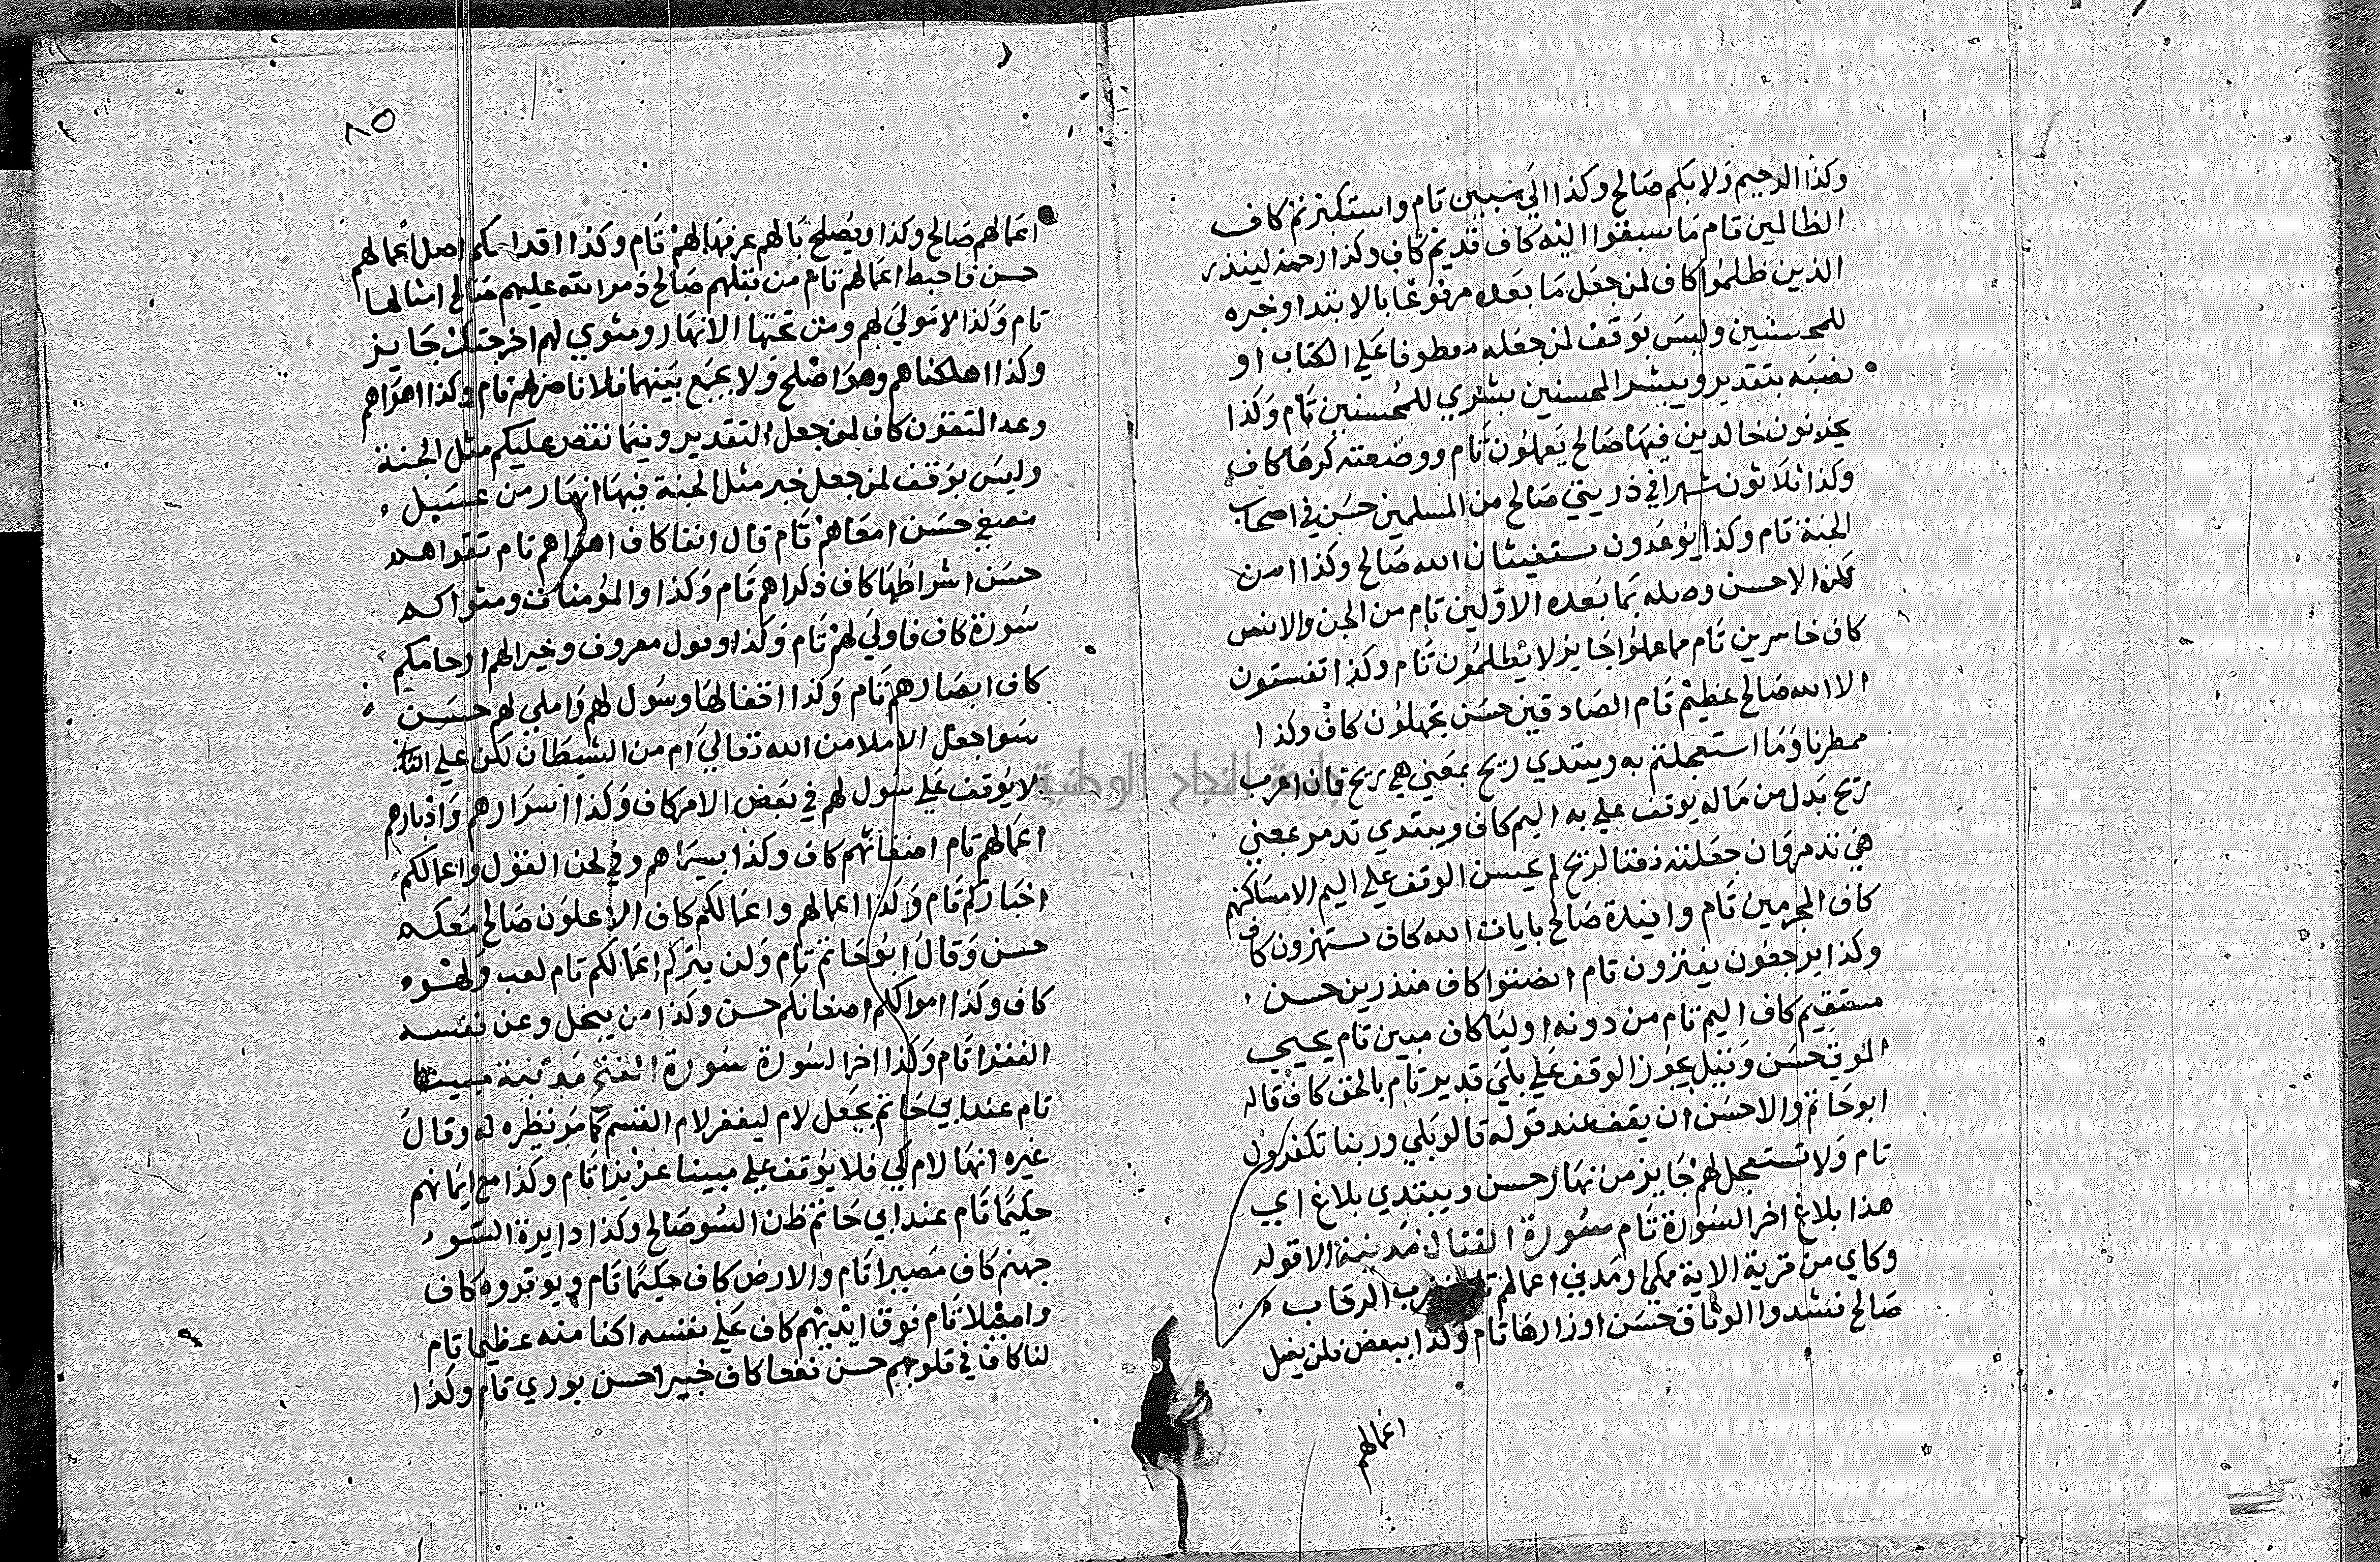 وكذا الرحيم ولا بكم صالح وكذا الى مبين تام واستكبرتم كاف
الظالمين تام ما سبقونا اليه كاف قديم كاف وكذا ورحمة لينذر
الذين ظلموا كاف لمن جعل ما بعده مرفوعا بالابتدا وخبره
للمحسنين وليس بوقف لمن جعله معطوفا على الكتاب او
نصبه بتقدير ويبشر المحسنين بشرى للمحسنين تام وكذا
يحزنون خالدين فيها صالح يعملون تام ووضعته كرها كاف
وكذا ثلاثون شهرا في ذريتي صالح من المسلمين حسن في اصحاب
الجنة تام وكذا يوعدون يستغيثان الله صالح وكذا امن
لكن الاحسن وصله بما بعده الاولين تام من الجن والانس
كاف خاسرين تام مما عملوا جايز لا يظلمون تام وكذا تفسقون
الا الله صالح عظيم تام الصادقين حسن تجهلون كاف وكذا
ممطرنا وما استعجلتم به ويبتدي ريح بمعنى هي ريح فان اعرب
ريح بدل من ما لم يوقف على به اليم كاف ويبتدي تدمر بمعنى
هي تدمر فان جعلته نعتا لريح لم يحسن الوقف على اليم الا مساكنهم
كاف المجرمين تام وافيدة صالح بايات الله كاف يستهزون كاف
وكذا يرجعون يفترون تام انصتوا كاف منذرين حسن
مستقيم كاف اليم تام من دونه اوليا كاف مبين تام يحيي
الموتى حسن وقيل يجوز الوقف على بلى قدير تام بالحق كاف قاله
ابو حاتم والاحسن ان يقف عند قوله قالو بلى وربنا تكفرون
تام ولا تستعجل لهم جايز من نهار حسن ويبتدي بلاغ اي
هذا بلاغ اخر السورة تام سورة القتال مدنية الا قوله
وكاي من قرية الاية مكي او مدني اعمالهم الرقاب
صالح فشدوا الوثاق حسن اوزارها تام وكذا ببعض فلن يضل
اعمالهم
٨٥
اعمالهم صالح وكذا ويصلح بالهم عرفها لهم تام وكذا اقدامكم اضل اعمالهم
حسن فاحبط اعمالهم تام من قبلهم صالح دمر الله عليهم صالح امثالها
تام وكذا لا مولى لهم ومن تحتها الانهار ومثوي لهم اخرجتك جايز
وكذا اهلكناهم وهو اصلح ولا يجمع بينهما فلا ناصر لهم تام وكذا اهواهم
وعد المتقون كاف لمن جعل التقدير وفيما نقص عليكم مثل الجنة
وليس بوقف لمن جعل خبر مثل الجنة فيها انهار من عسل
مصفى حسن امعاهم تام قال انفا كاف اهواهم تام تقواهم
حسن اشراطها كاف ذكراهم تام وكذا والمومنات ومثواكم
سورة كاف فاولى لهم تام وكذا وقول معروف وخيرا لهم ارحامكم
كاف ابصارهم تام وكذا اقفالها وسول لهم واملي لهم حسن
سوا جعل الاملا من الله تعالى ام من الشيطان لكن على
لا يوقف على سول لهم في بعض الامر كاف وكذا اسرارهم وادبارهم
اعمالهم تام اضغانهم كاف وكذا بسيماهم وفي لحن القول واعمالكم
اخباركم تام وكذا اعمالهم واعمالكم كاف الاعلون صالح معكم
حسن وقال ابو حاتم تام ولن يتركم اعمالكم تام لعب ولهو
كاف وكذا اموالكم اضغانكم حسن وكذا من يبخل وعن نفسه
الفقرا تام وكذا اخر السورة سورة الفتح مدنية مبينا
تام عند ابي حاتم بجعل لام ليغفر لام القسم كما مر نظيره له وقال
غيره انها لام كي فلا يوقف على مبينا عزيزا تام وكذا مع ايمانهم
حكيما تام عند ابي حاتم ظن السو صالح وكذا دايرة السو
جهنم كاف مصيرا تام والارض كاف حكيما تام ويوقروه كاف
واصيلا تام فوق ايديهم كاف على نفسه اكفا منه عظيما تام
لنا كاف في قلوبهم حسن نفعا كاف خبيرا حسن بوري تام وكذا
جامعة النجاح الوطنية